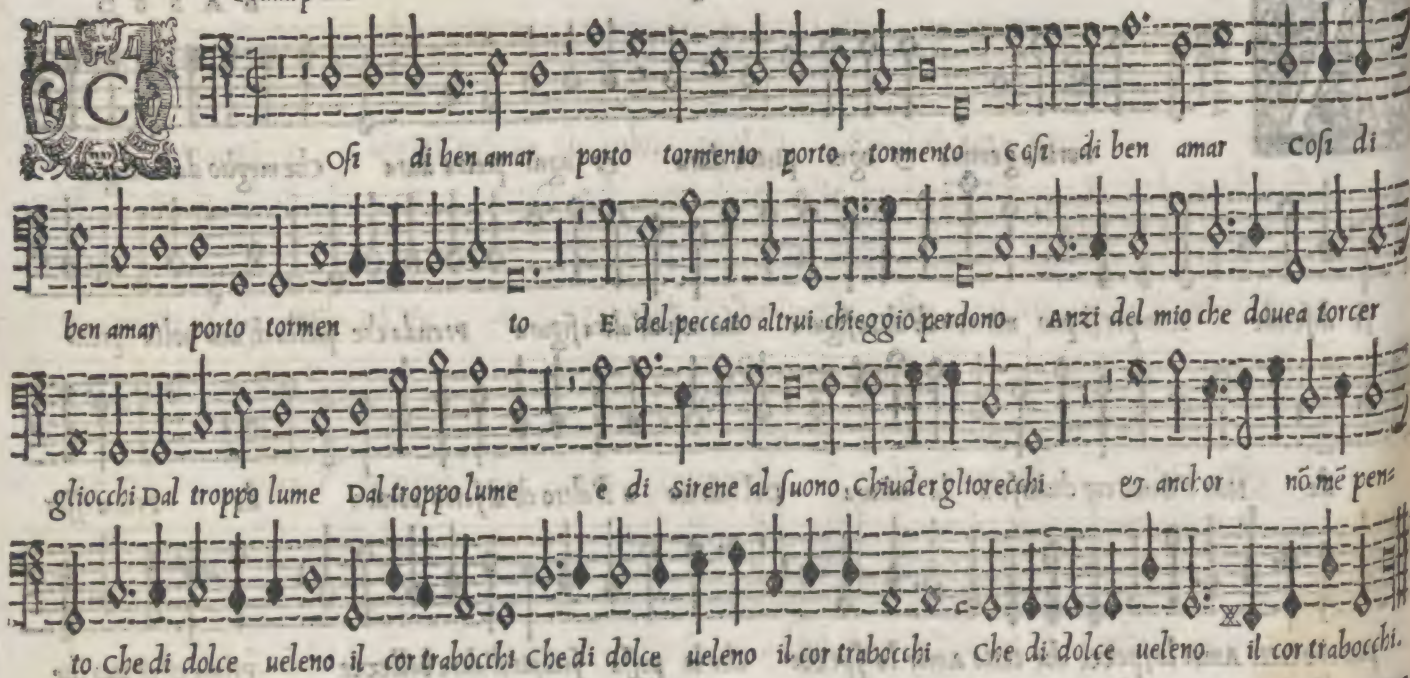 C
Osi di ben amar porto tormento porto tormento Cosi di ben amar Cosi di
ben amar porto tormen to E del peccato altrui chieggio perdono Anzi del mio che douea torcer
gliocchi Dal troppo lume Dal troppo lume e di sirene al suono Chiuder gliorecchi & anchor nõ mẽ pen=
to Che di dolce ueleno il cor trabocchi Che di dolce ueleno il cor trabocchi Che di dolce ueleno il cor trabocchi.